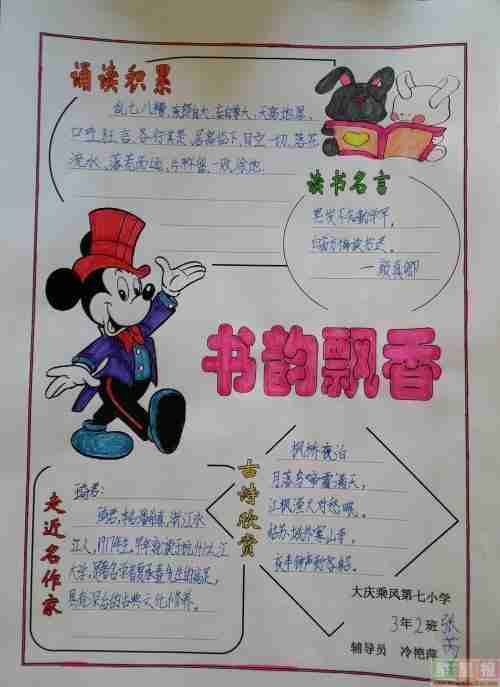 诵读积累
乱七八糟、夜郎自大、妄自尊大、天高地厚、
口吐狂言、各行其是、居高临下、目空一切、落花
流水、落荒而逃、一败涂地
读书名言
黑发不知勤学早,
白首方悔读书迟。
—颜真卿
书韵飘香
古诗欣赏
枫桥夜泊
月落乌啼霜满天,
江枫渔火对愁眠。
姑苏城外寒山寺,
夜半钟声到客船。
走近名作家
琦君:
琦君,本名潘希真,浙江永
江人,1917年生,早年就读于杭州之江
大学,是著名学者夏承焘先生的高足,
具有深厚的古典文化修养。
大庆乘风第七小学
3年2班 张
辅导员 冷艳萍